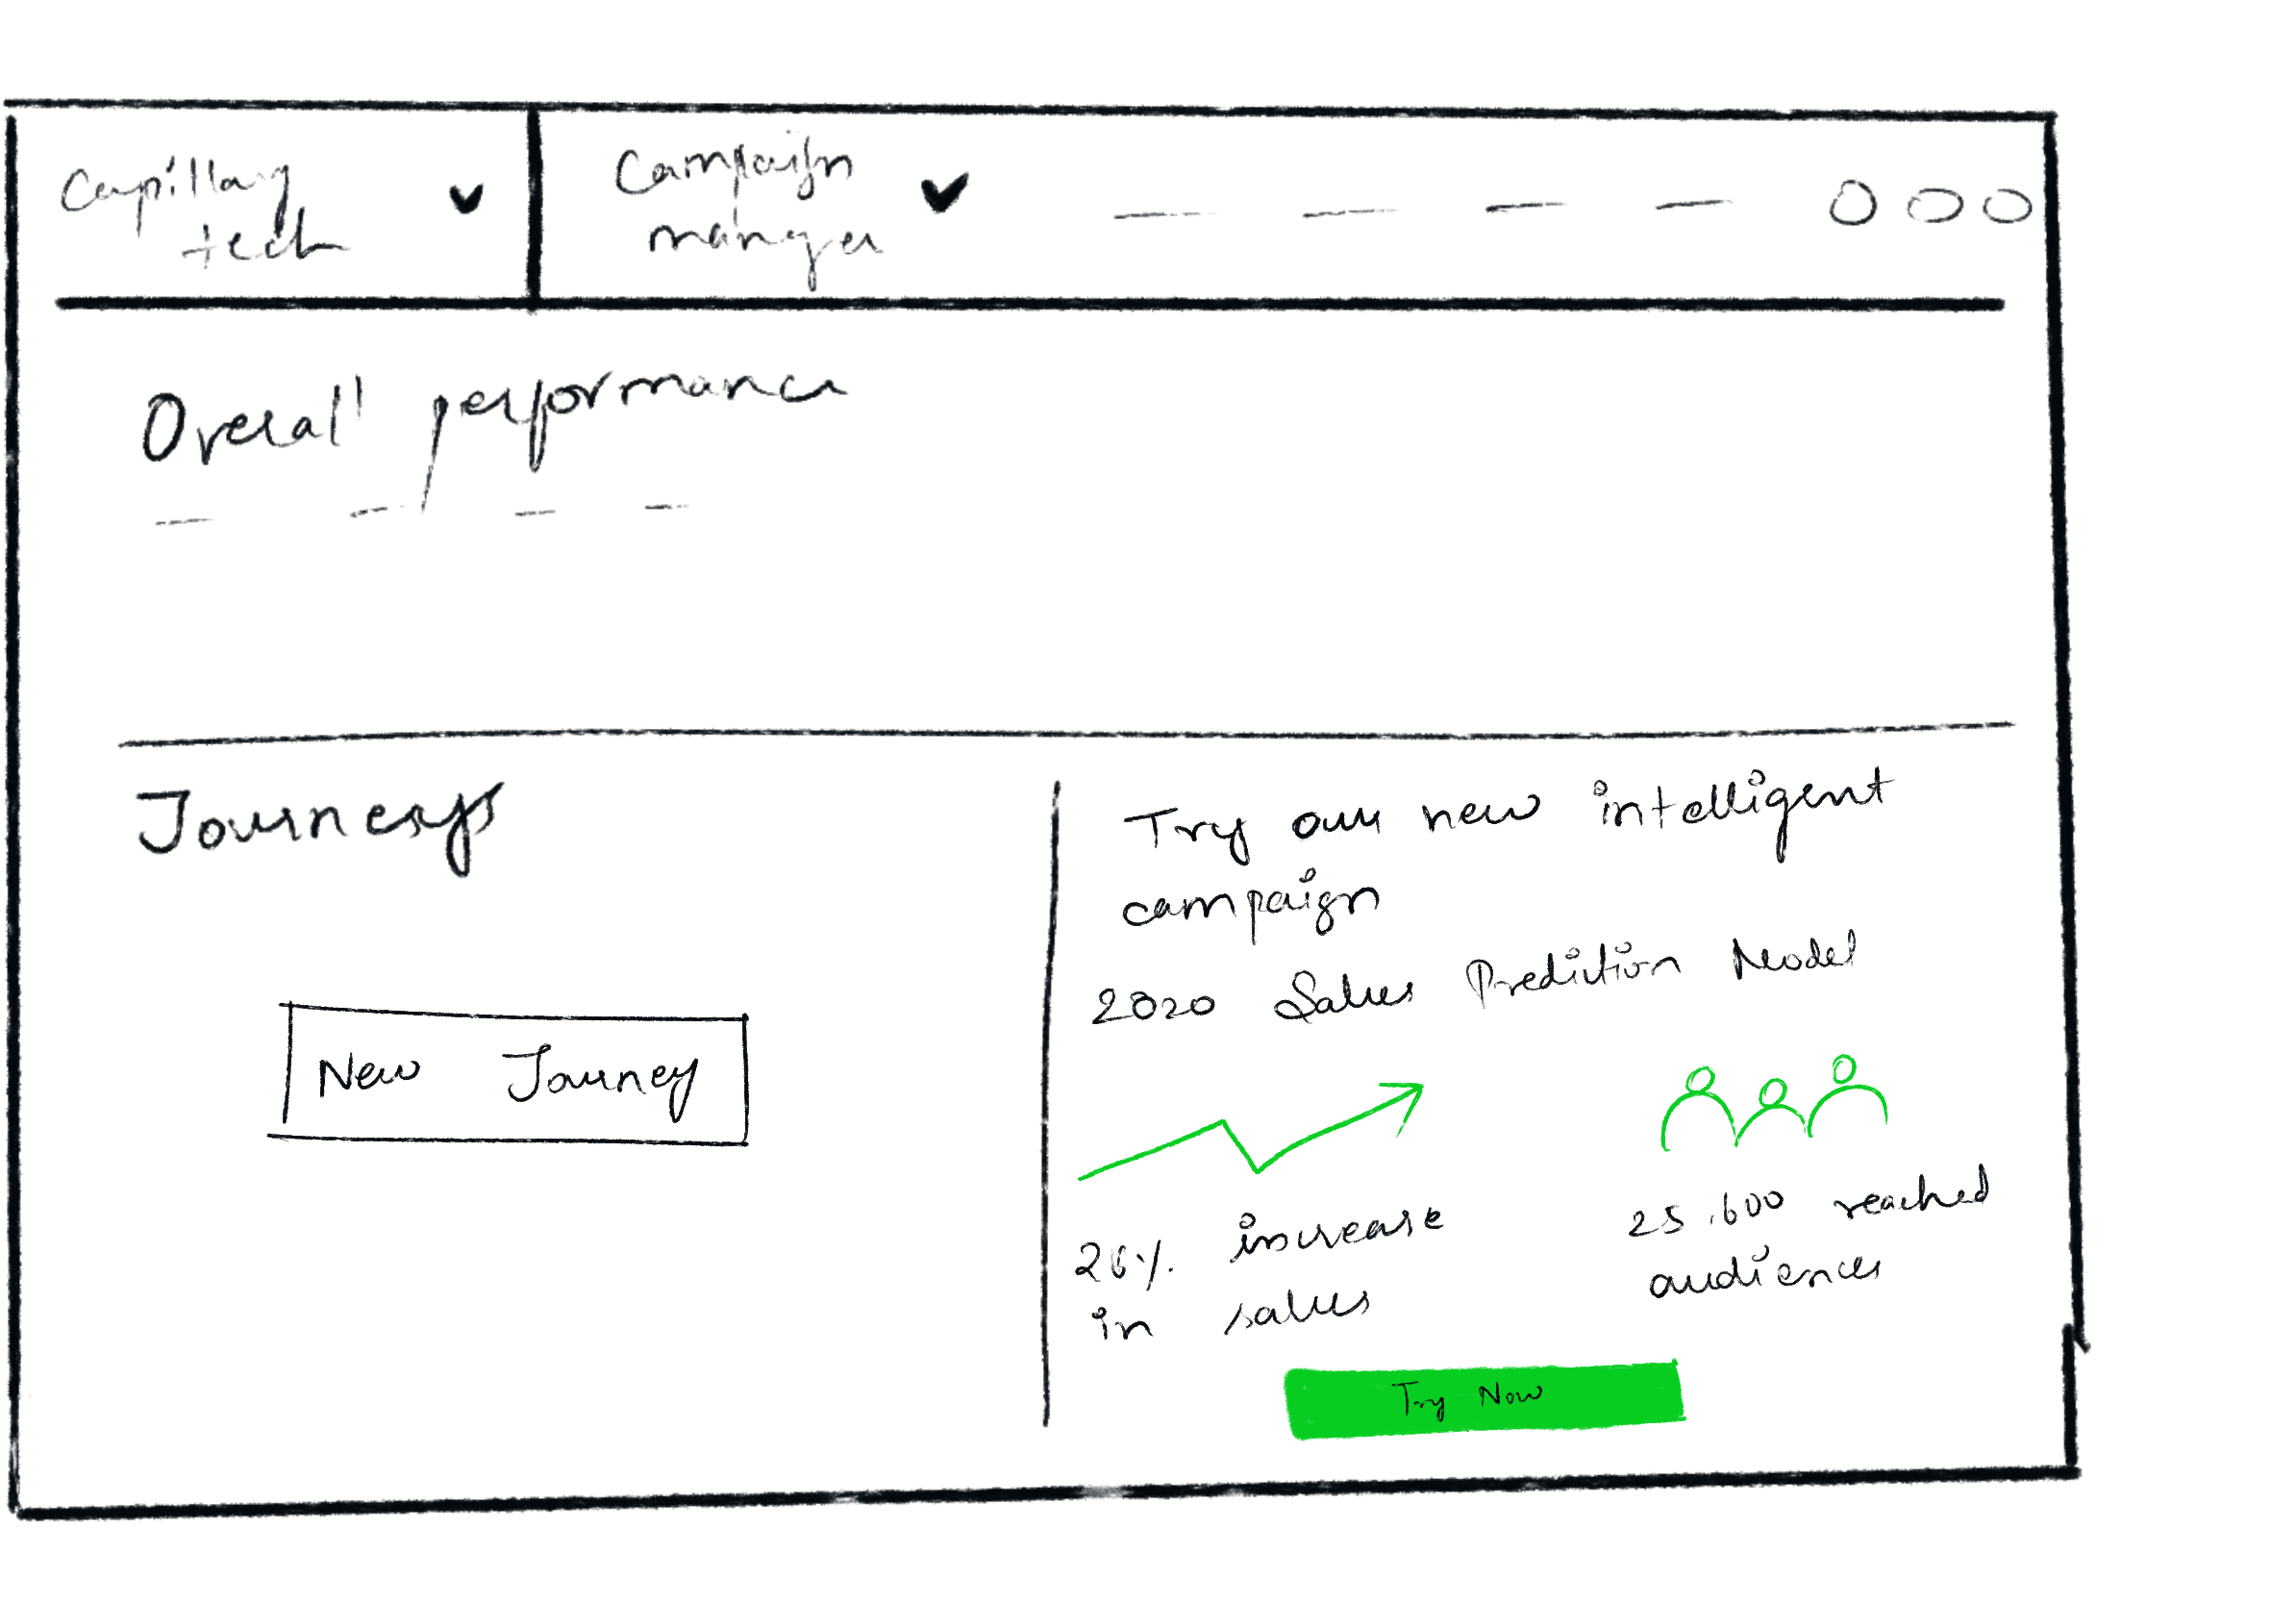 Capillary
tech
Campaign
manager
Overall performance
Journeys
New Journey
Try our new intelligent
campaign
2020 Sales Prediction Model
26% increase
in sales
25.600 reached
audiences
Try Now